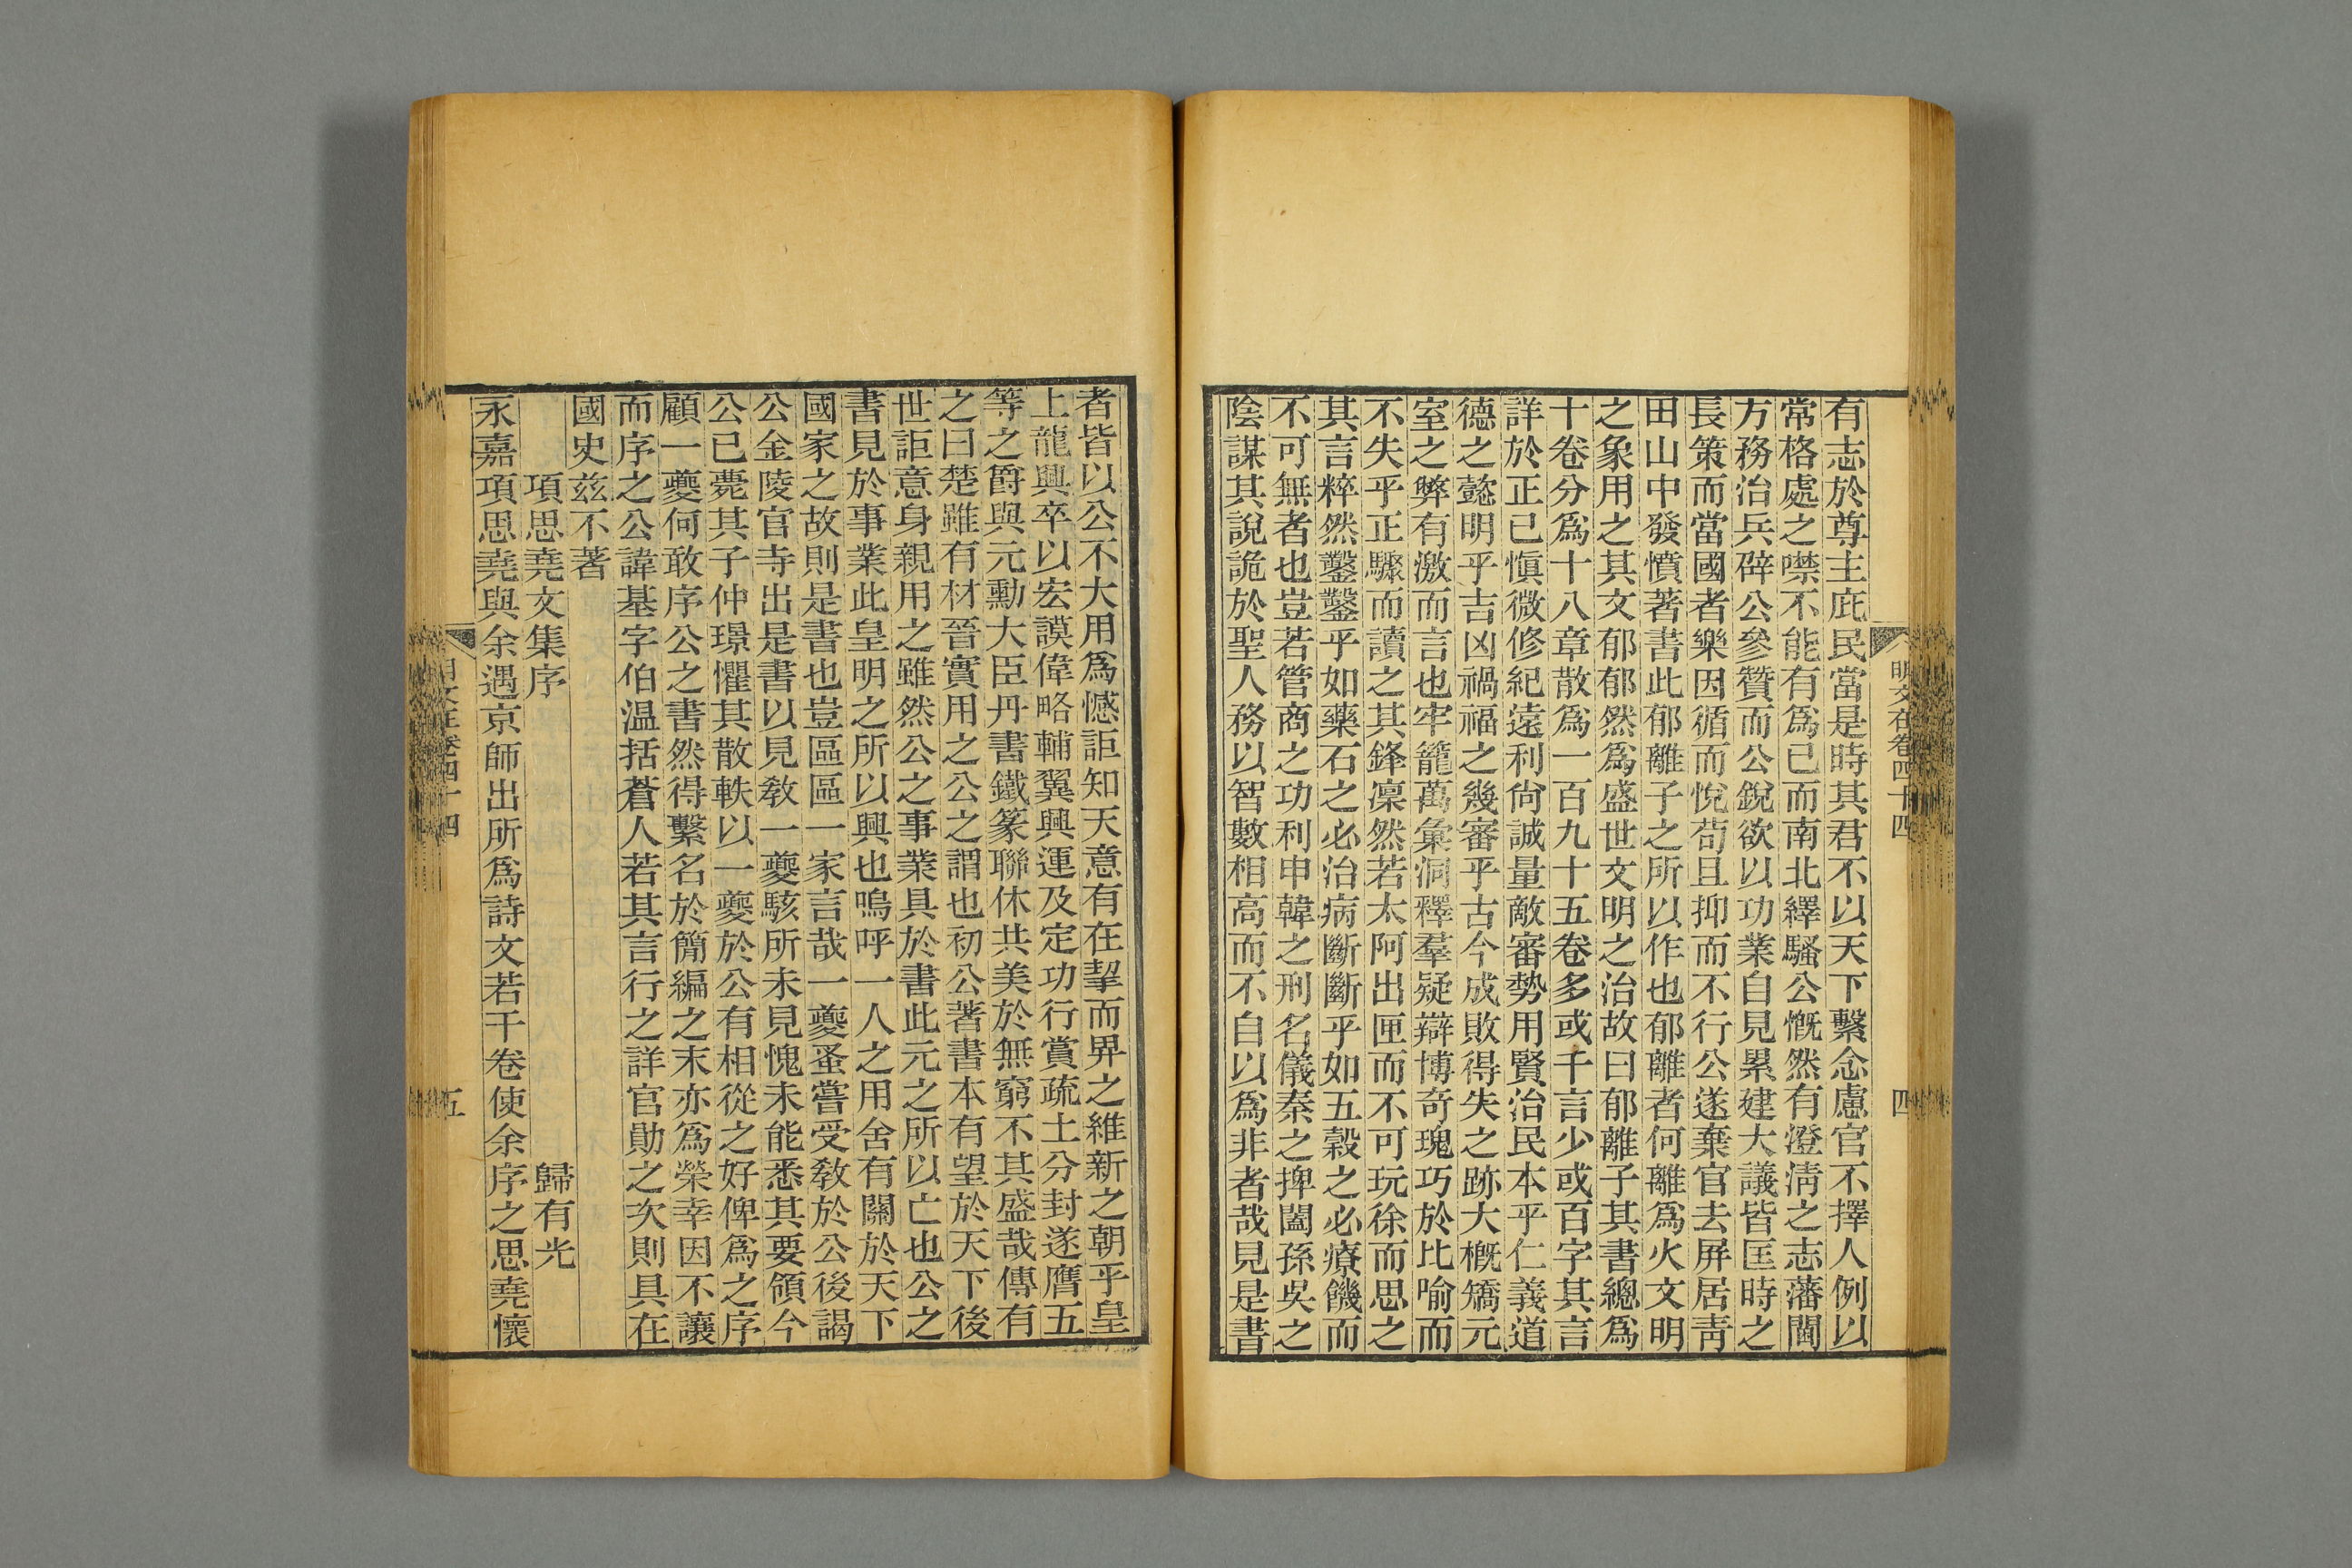 有志於尊主庇民當是時其君不以天下繫念慮官不擇人例以
常格處之噤不能有爲已而南北繹騷公慨然有澄淸之志藩閫
方務治兵辟公參贊而公銳欲以功業自見累建大議皆匡時之
長策而當國者樂因循而悅苟且抑而不行公遂棄官去屏居靑
田山中發憤著書此郁離子之所以作也郁離者何離爲火文明
之象用之其文郁郁然爲盛世文明之治故曰郁離子其書總爲
十卷分爲十八章散爲一百九十五卷多或千言少或百字其言
詳於正已愼微修紀遠利尙誠量敵審勢用賢治民本乎仁義道
德之懿明乎吉凶禍福之幾審乎古今成敗得失之跡大槪矯元
室之弊有激而言也牢籠萬彙洞釋羣疑辯博奇瑰巧於比喻而
不失乎正驟而讀之其鋒凜然若太阿出匣而不可玩徐而思之
其言粹然鑿鑿乎如藥石之必治病斷斷乎如五穀之必療饑而
不可無者也豈若管商之功利申韓之刑名儀秦之捭闔孫吳之
陰謀其說詭於聖人務以智數相高而不自以爲非者哉見是書
明文在卷四十四
四
者皆以公不大用爲憾詎知天意有在挈而畀之維新之朝乎皇
上龍興卒以宏謨偉略輔翼興運及定功行賞疏土分封遂膺五
等之爵與元勳大臣丹書鐵篆聯休共美於無窮不其盛哉傳有
之曰楚雖有材晉實用之公之謂也初公著書本有望於天下後
世詎意身親用之雖然公之事業具於書此元之所以亡也公之
書見於事業此皇明之所以興也嗚呼一人之用舍有關於天下
國家之故則是書也豈區區一家言哉一夔蚤嘗受敎於公後謁
公金陵官寺出是書以見敎一夔駭所未見愧未能悉其要領今
公已薨其子仲璟懼其散軼以一夔於公有相從之好俾爲之序
顧一夔何敢序公之書然得繫名於簡編之末亦爲榮幸因不讓
而序之公諱基字伯温括蒼人若其言行之詳官勛之次則具在
國史茲不著
項思堯文集序　歸有光
永嘉項思堯與余遇京師出所爲詩文若干卷使余序之思堯懷
明文在卷四十四
五